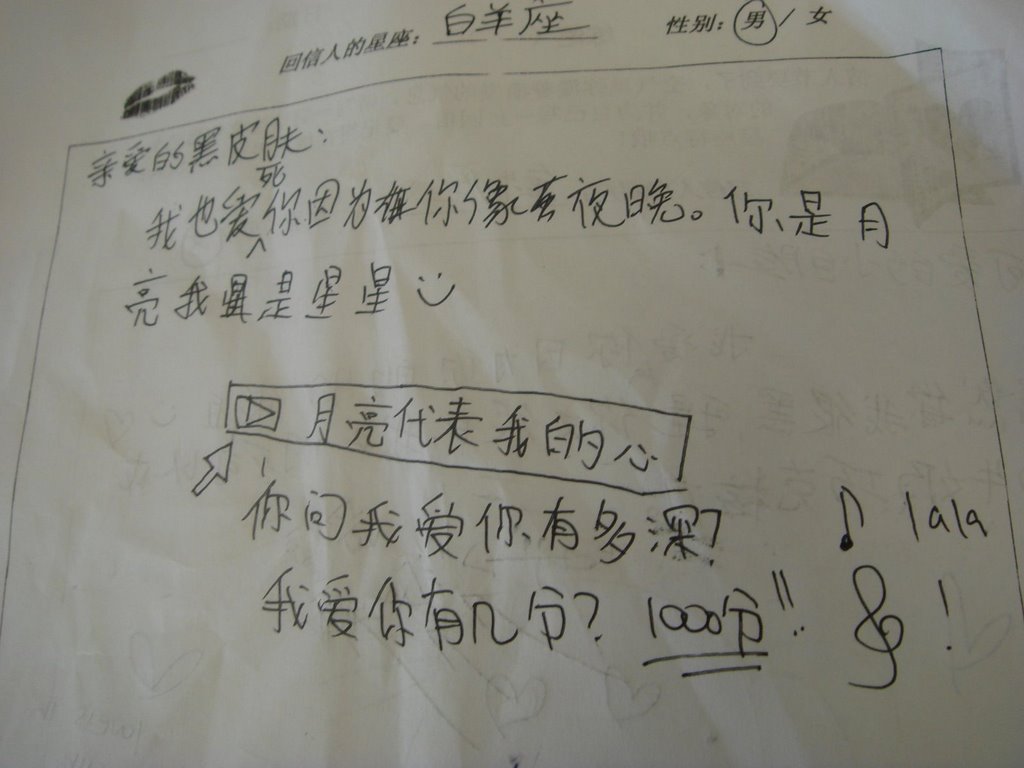 回信人的星座：白羊座 性别：男 / 女
亲爱的黑皮肤：
我也爱死你因为你像夜晚。你是月
亮我是星星
月亮代表我的心
你问我爱你有多深？ lala
我爱你有几分？1000分!! !